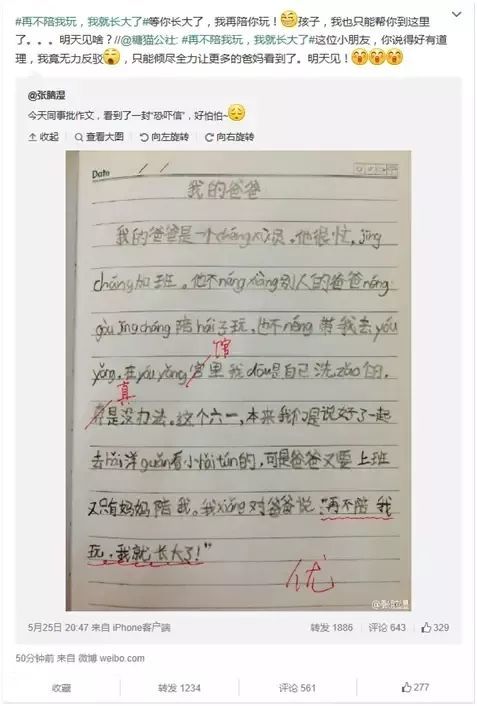 #再不陪我玩，我就长大了#等你长大了，我再陪你玩！孩子，我也只能帮你到这里
了。。。明天见啥？//@糖猫公社: #再不陪我玩，我就长大了#这位小朋友，你说得好有道
理，我竟无力反驳，只能倾尽全力让更多的爸妈看到了。明天见！
@张脑湿
今天同事批作文，看到了一封“恐吓信”，好怕怕~
收起 查看大图 向左旋转 向右旋转
Date
我的爸爸
我的爸爸是一个chéng 员。他很忙，jīng
cháng加班。他不néng xiàng别人的爸爸néng
gòu jīng cháng 陪hái子玩，也不néng 带我去yóu
yǒng。在yóu yǒng 宫里 我 dōu是自己 洗zǎo 的，
馆
真
是没办法。这个六一，本来我们是说好了一起
去hǎi洋guǎn看小hǎi tún的，可是爸爸又要上班
又只有妈妈陪我。我xiǎng对爸爸说：“再不陪我
玩，我就长大了！”
优
@张脑湿
5月25日 20:47 来自 iPhone客户端 转发 1886 评论 643 329
50分钟前 来自 微博 weibo.com
收藏 转发 1234 评论 561 277